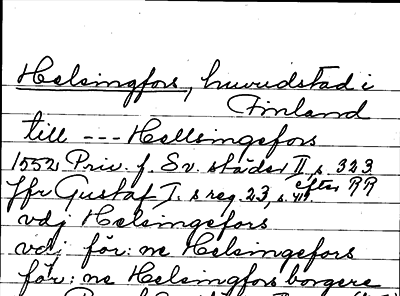 Helsingfors, huvudstad i
Finland
till --- Hellsingefors
1552 Priv. f. Sv. städer II, s. 323
ffr Gustaf I. s reg. 23, s. 411. efter RR
vdj Helsingefors
vdj för: ne Helsingefors
för: ne Helsingfors borgere